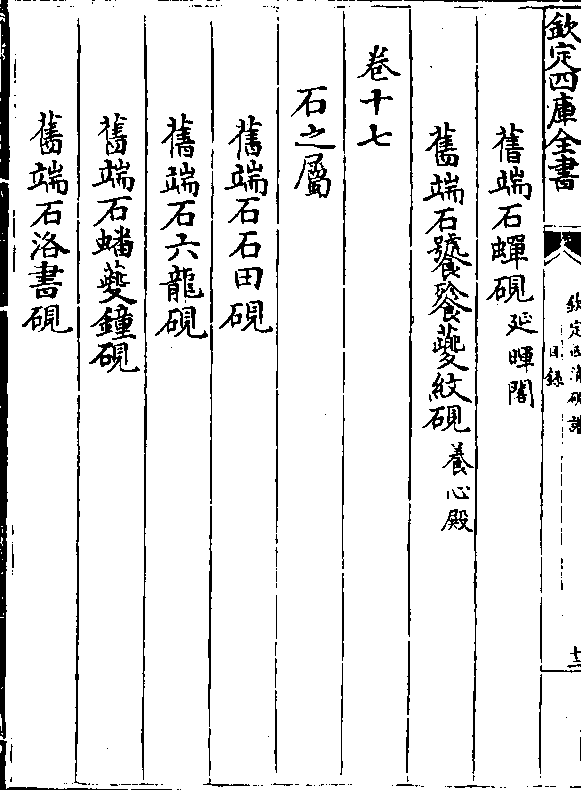 欽定四庫全書
欽定西清硯譜
目錄
十二
舊端石蟬硯 延暉閣
舊端石饕餮夔紋硯 養心殿
卷十七
石之屬
舊端石石田硯
舊端石六龍硯
舊端石蟠夔鐘硯
舊端石洛書硯